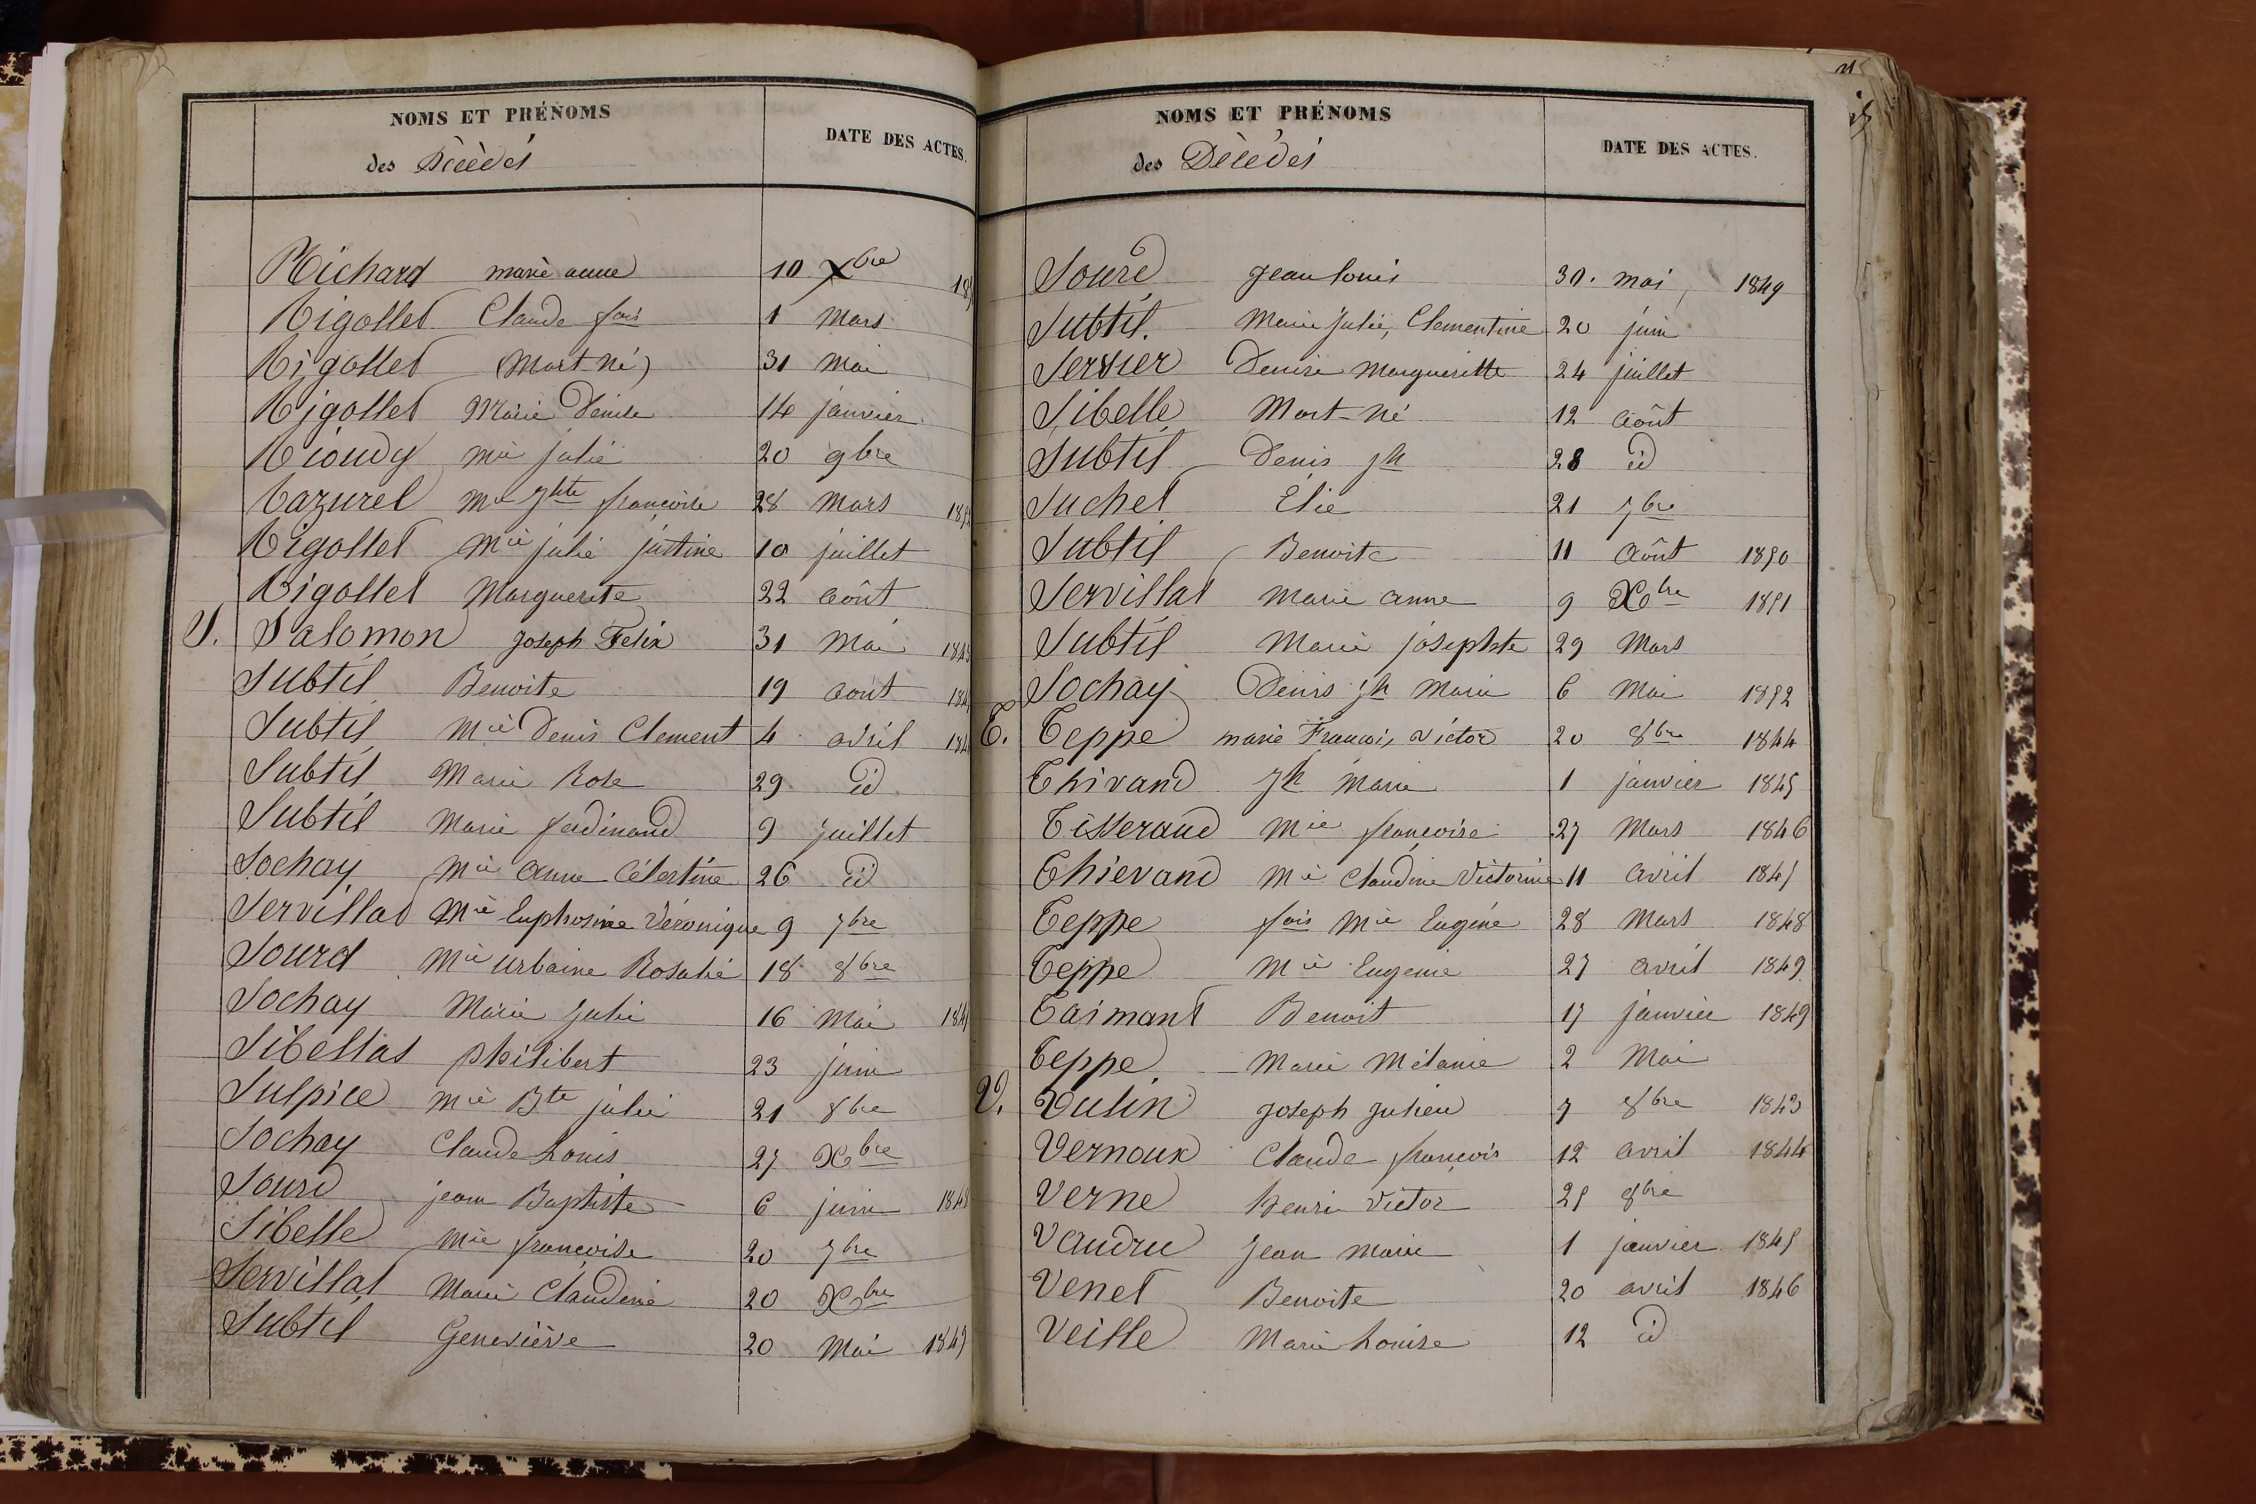 NOMS ET PRÉNOMS
des Décédés
DATE DES ACTES.
Richard marie anne 10 Xbre
Rigollet Claude fois 1 Mars
Rigollet (Mort né) 31 Mai
Rigollet Marie Denise 14 janvier
Rioudy Mie julie 20 9bre
Razurel Mie jhte françoise 28 Mars
Rigollet Mie julie justine 10 juillet
Rigollet Marguerite 22 août
S. Salomon joseph Felix 31 Mai
Subtil Benoite 19 aout
Subtil Mie Denis Clement 4 avril
Subtil Marie Rose 29 id
Subtil Marie ferdinand 9 juillet
Sochay Mie Anne Célestine 26 id
Servillat Mie Euphrosine Véronique 9 7bre
Sourd Mie Urbaine Rosalie 18 8bre
Sochay Marie Julie 16 Mai
Sibellas philibert 23 juin
Sulpice Mie Bte julie 21 8bre
Sochay Claude Louis 27 Xbre
Sourd jean Baptiste 6 juin 1848
Sibelle Mie françoise 20 7bre
Servillat Marie Claudine 20 Xbre
Subtil Geneviève 20 Mai 1849
NOMS ET PRÉNOMS
des Décédés
DATE DES ACTES.
Sourd jean louis 30. mai, 1849
Subtil. Marie Julie, Clementine 20 juin
Servier Denise Margueritte 24 juillet
Sibelle Mort-né 12 Août
Subtil Denis jh 28 id
Suchet Élie 21 7bre
Subtil Benoite 11 Août 1850
Servillat Marie anne 9 Xbre 1851
Subtil Marie josephte 29 Mars
Sochay Denis jh Marie 6 Mai 1852
T. Teppe marie François Victor 20 8bre 1844
Thivand jh Marie 1 janvier 1845
Tisserand Mie françoise 27 Mars 1846
Thievand Mie Claudine Victorine 11 avril 1845
Teppe fois Mie Eugéne 28 Mars 1848
Teppe Mie Eugenie 27 avril 1849
Taimant Benoit 17 janvier 1849
Teppe Marie Mélanie 2 Mai
V. Vulin joseph Julien 7 8bre 1843
Vernoux Claude françois 12 avril 1844
Verne henri Victor 25 8bre
Vaudru Jean Marie 1 janvier 1845
Venet Benoite 20 avril 1846
Veille Marie Louise 12 id